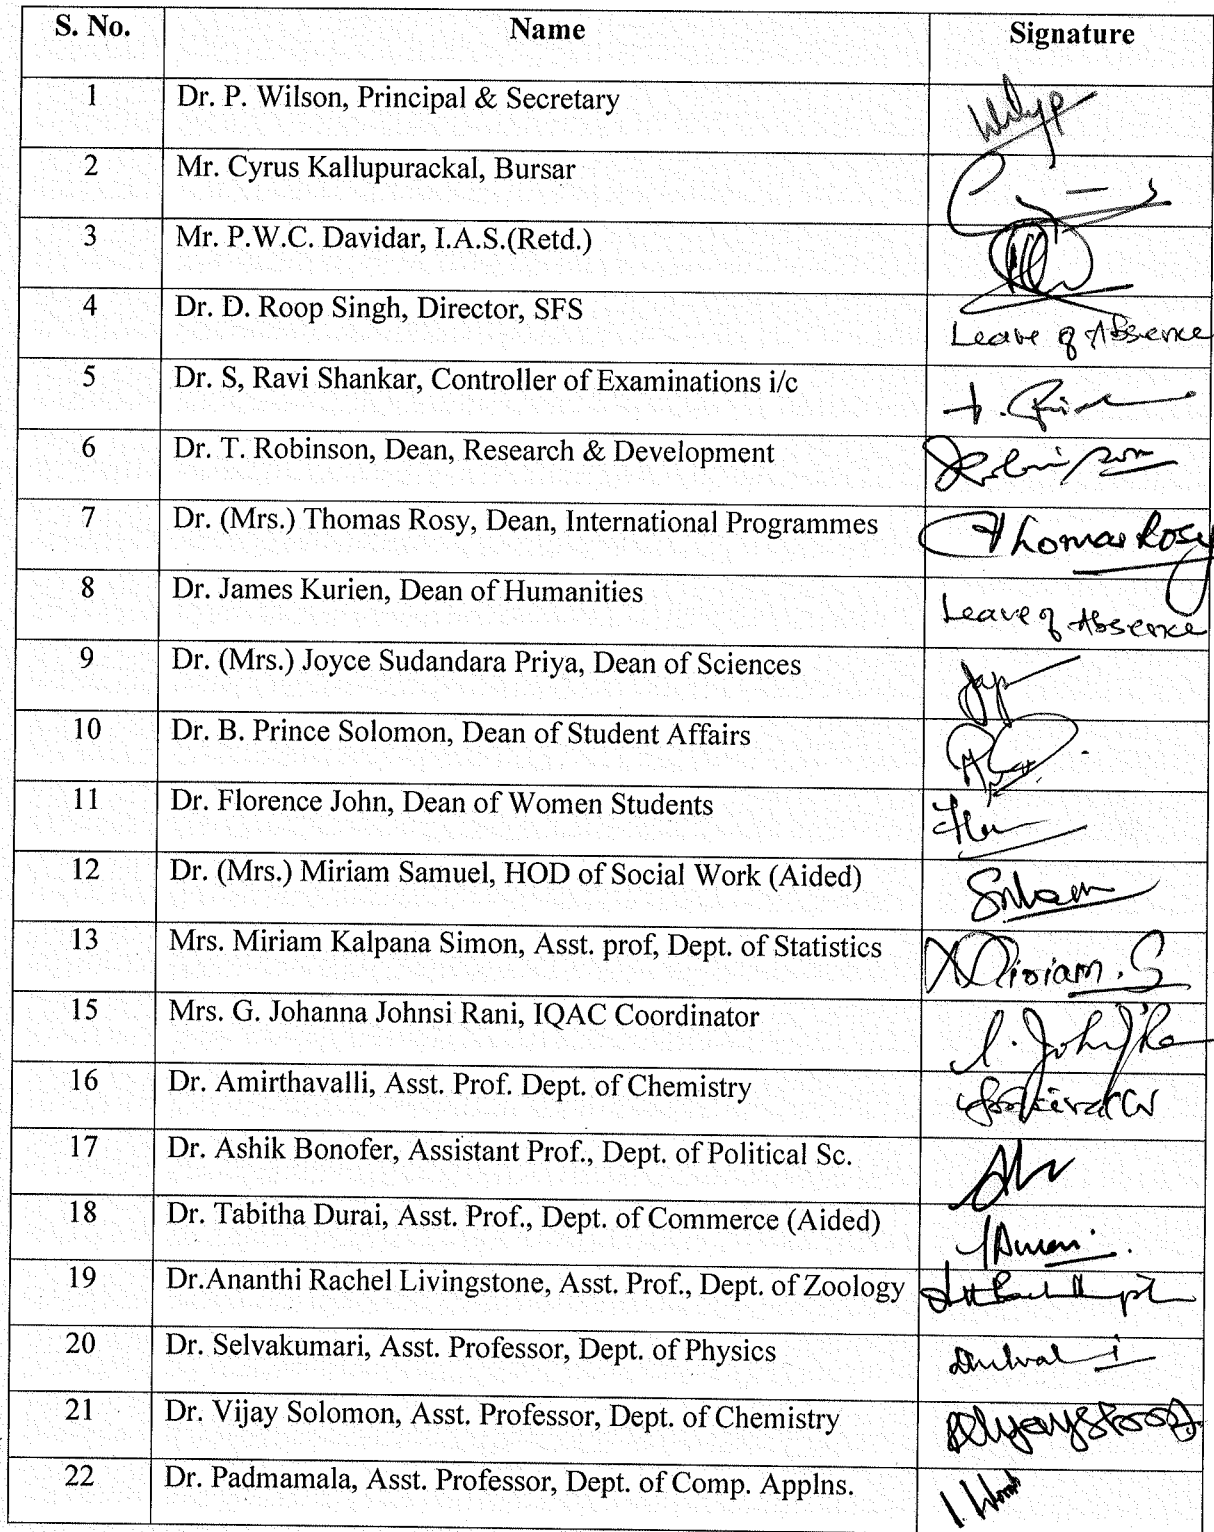 S. No. Name Signature
1 Dr. P. Wilson, Principal & Secretary
2 Mr. Cyrus Kallupurackal, Bursar
3 Mr. P.W.C. Davidar, I.A.S.(Retd.)
4 Dr. D. Roop Singh, Director, SFS Leave of Absence
5 Dr. S, Ravi Shankar, Controller of Examinations i/c
6 Dr. T. Robinson, Dean, Research & Development
7 Dr. (Mrs.) Thomas Rosy, Dean, International Programmes Thomas Rosy
8 Dr. James Kurien, Dean of Humanities Leave of Absence
9 Dr. (Mrs.) Joyce Sudandara Priya, Dean of Sciences
10 Dr. B. Prince Solomon, Dean of Student Affairs
11 Dr. Florence John, Dean of Women Students
12 Dr. (Mrs.) Miriam Samuel, HOD of Social Work (Aided)
13 Mrs. Miriam Kalpana Simon, Asst. prof, Dept. of Statistics Miriam. S
15 Mrs. G. Johanna Johnsi Rani, IQAC Coordinator
16 Dr. Amirthavalli, Asst. Prof. Dept. of Chemistry
17 Dr. Ashik Bonofer, Assistant Prof., Dept. of Political Sc.
18 Dr. Tabitha Durai, Asst. Prof., Dept. of Commerce (Aided)
19 Dr.Ananthi Rachel Livingstone, Asst. Prof., Dept. of Zoology
20 Dr. Selvakumari, Asst. Professor, Dept. of Physics
21 Dr. Vijay Solomon, Asst. Professor, Dept. of Chemistry
22 Dr. Padmamala, Asst. Professor, Dept. of Comp. Applns.